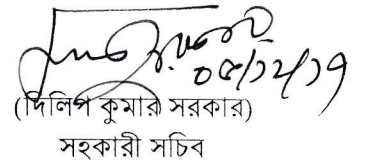 ০৫/১২/১৭
(দিলিপ কুমার সরকার)
সহকারী সচিব